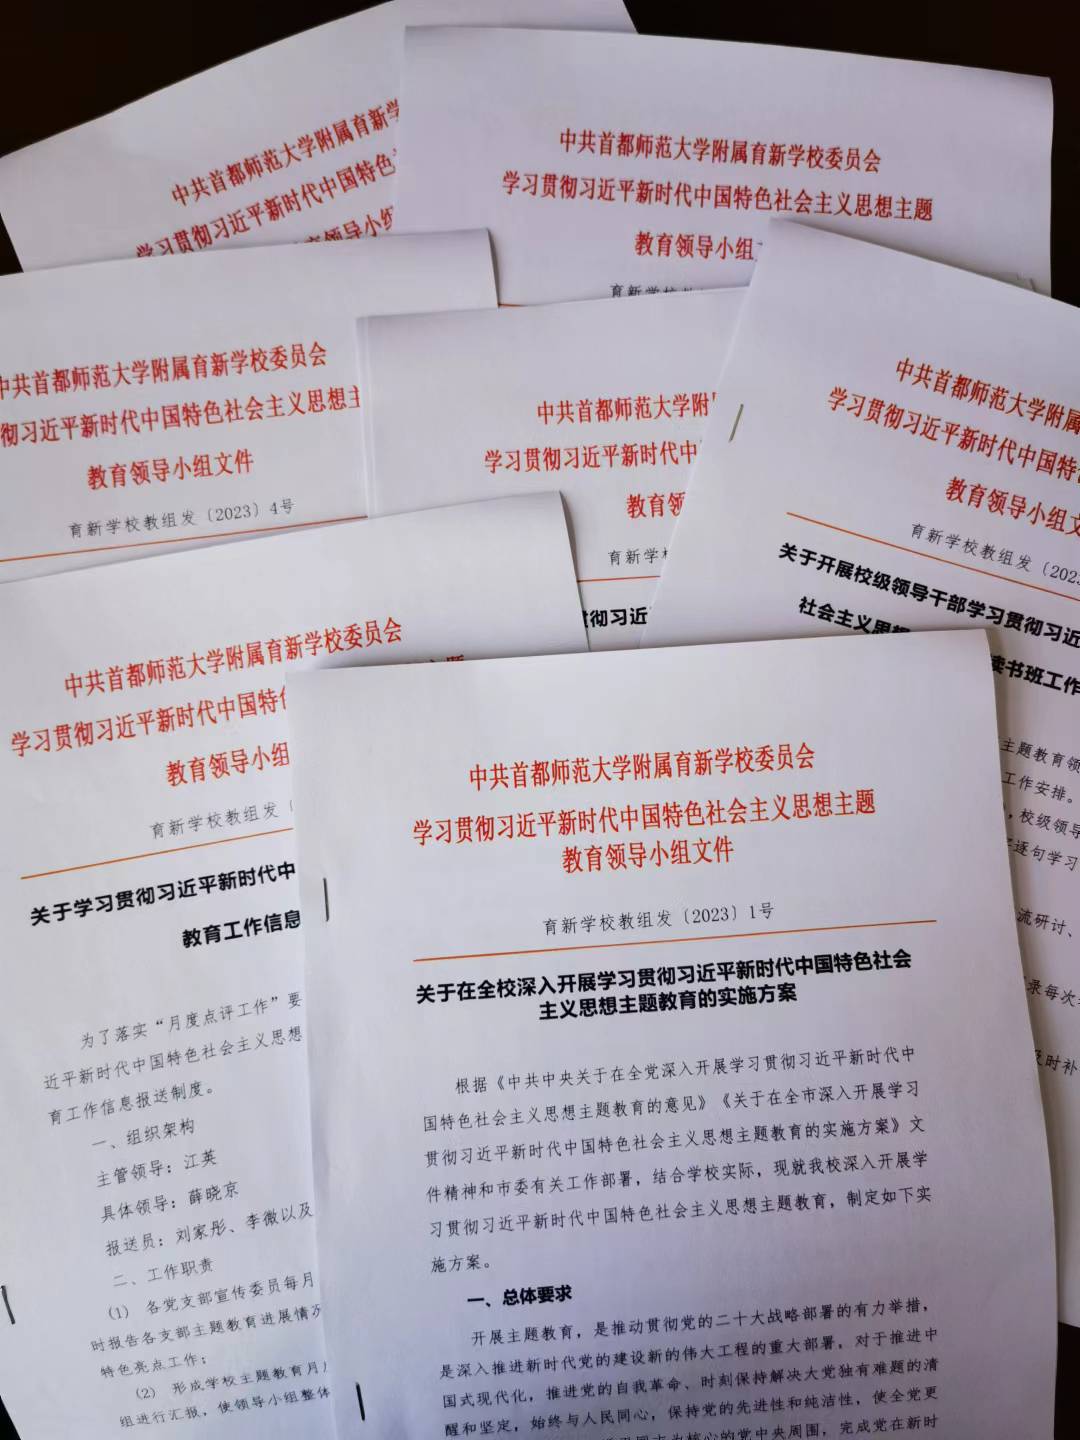 中共首都师范大学附属育新学
学习贯彻习近平新时代中国特色
育领导小组
中共首都师范大学附属育新学校委员会
学习贯彻习近平新时代中国特色社会主义思想主题
教育领导小组
育新学校
中共首都师范大学附属育新学校委员会
彻习近平新时代中国特色社会主义思想主
教育领导小组文件
育新学校教组发〔2023〕4号
中共首都师范大学附
学习贯彻习近平新时代中
教育领
育新学
彻习近
中共首都师范大学附属
学习贯彻习近平新时代中国特
教育领导小组文
育新学校教组发〔202
关于开展校级领导干部学习贯彻习近
社会主义思想
读书班工作
主题教育领
工作安排。
，校级领导
逐句学习
流研讨、
录每次
及时补
中共首都师范大学附属育新学校委员会
学习贯彻习近平新时代中国特
教育领导小组
育新学校教组发〔
关于学习贯彻习近平新时代中
教育工作信息
为了落实“月度点评工作”要
近平新时代中国特色社会主义思想
育工作信息报送制度。
一、组织架构
主管领导：江英
具体领导：薛晓京
报送员：刘家彤、李微以及
二、工作职责
(1) 各党支部宣传委员每月
时报告各支部主题教育进展情况
特色亮点工作；
(2) 形成学校主题教育月
组进行汇报，使领导小组整体
中共首都师范大学附属育新学校委员会
学习贯彻习近平新时代中国特色社会主义思想主题
教育领导小组文件
育新学校教组发〔2023〕1号
关于在全校深入开展学习贯彻习近平新时代中国特色社会
主义思想主题教育的实施方案
根据《中共中央关于在全党深入开展学习贯彻习近平新时代中
国特色社会主义思想主题教育的意见》《关于在全市深入开展学习
贯彻习近平新时代中国特色社会主义思想主题教育的实施方案》文
件精神和市委有关工作部署，结合学校实际，现就我校深入开展学
习贯彻习近平新时代中国特色社会主义思想主题教育，制定如下实
施方案。
一、总体要求
开展主题教育，是推动贯彻党的二十大战略部署的有力举措，
是深入推进新时代党的建设新的伟大工程的重大部署，对于推进中
国式现代化，推进党的自我革命、时刻保持解决大党独有难题的清
醒和坚定，始终与人民同心，保持党的先进性和纯洁性，使全党更
核心的党中央周围，完成党在新时